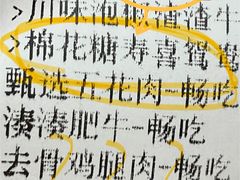 >川味泡椒渣渣牛
>棉花糖寿喜鸳鸯
甄选五花肉-畅吃
湊湊肥牛-畅吃
去骨鸡腿肉-畅吃